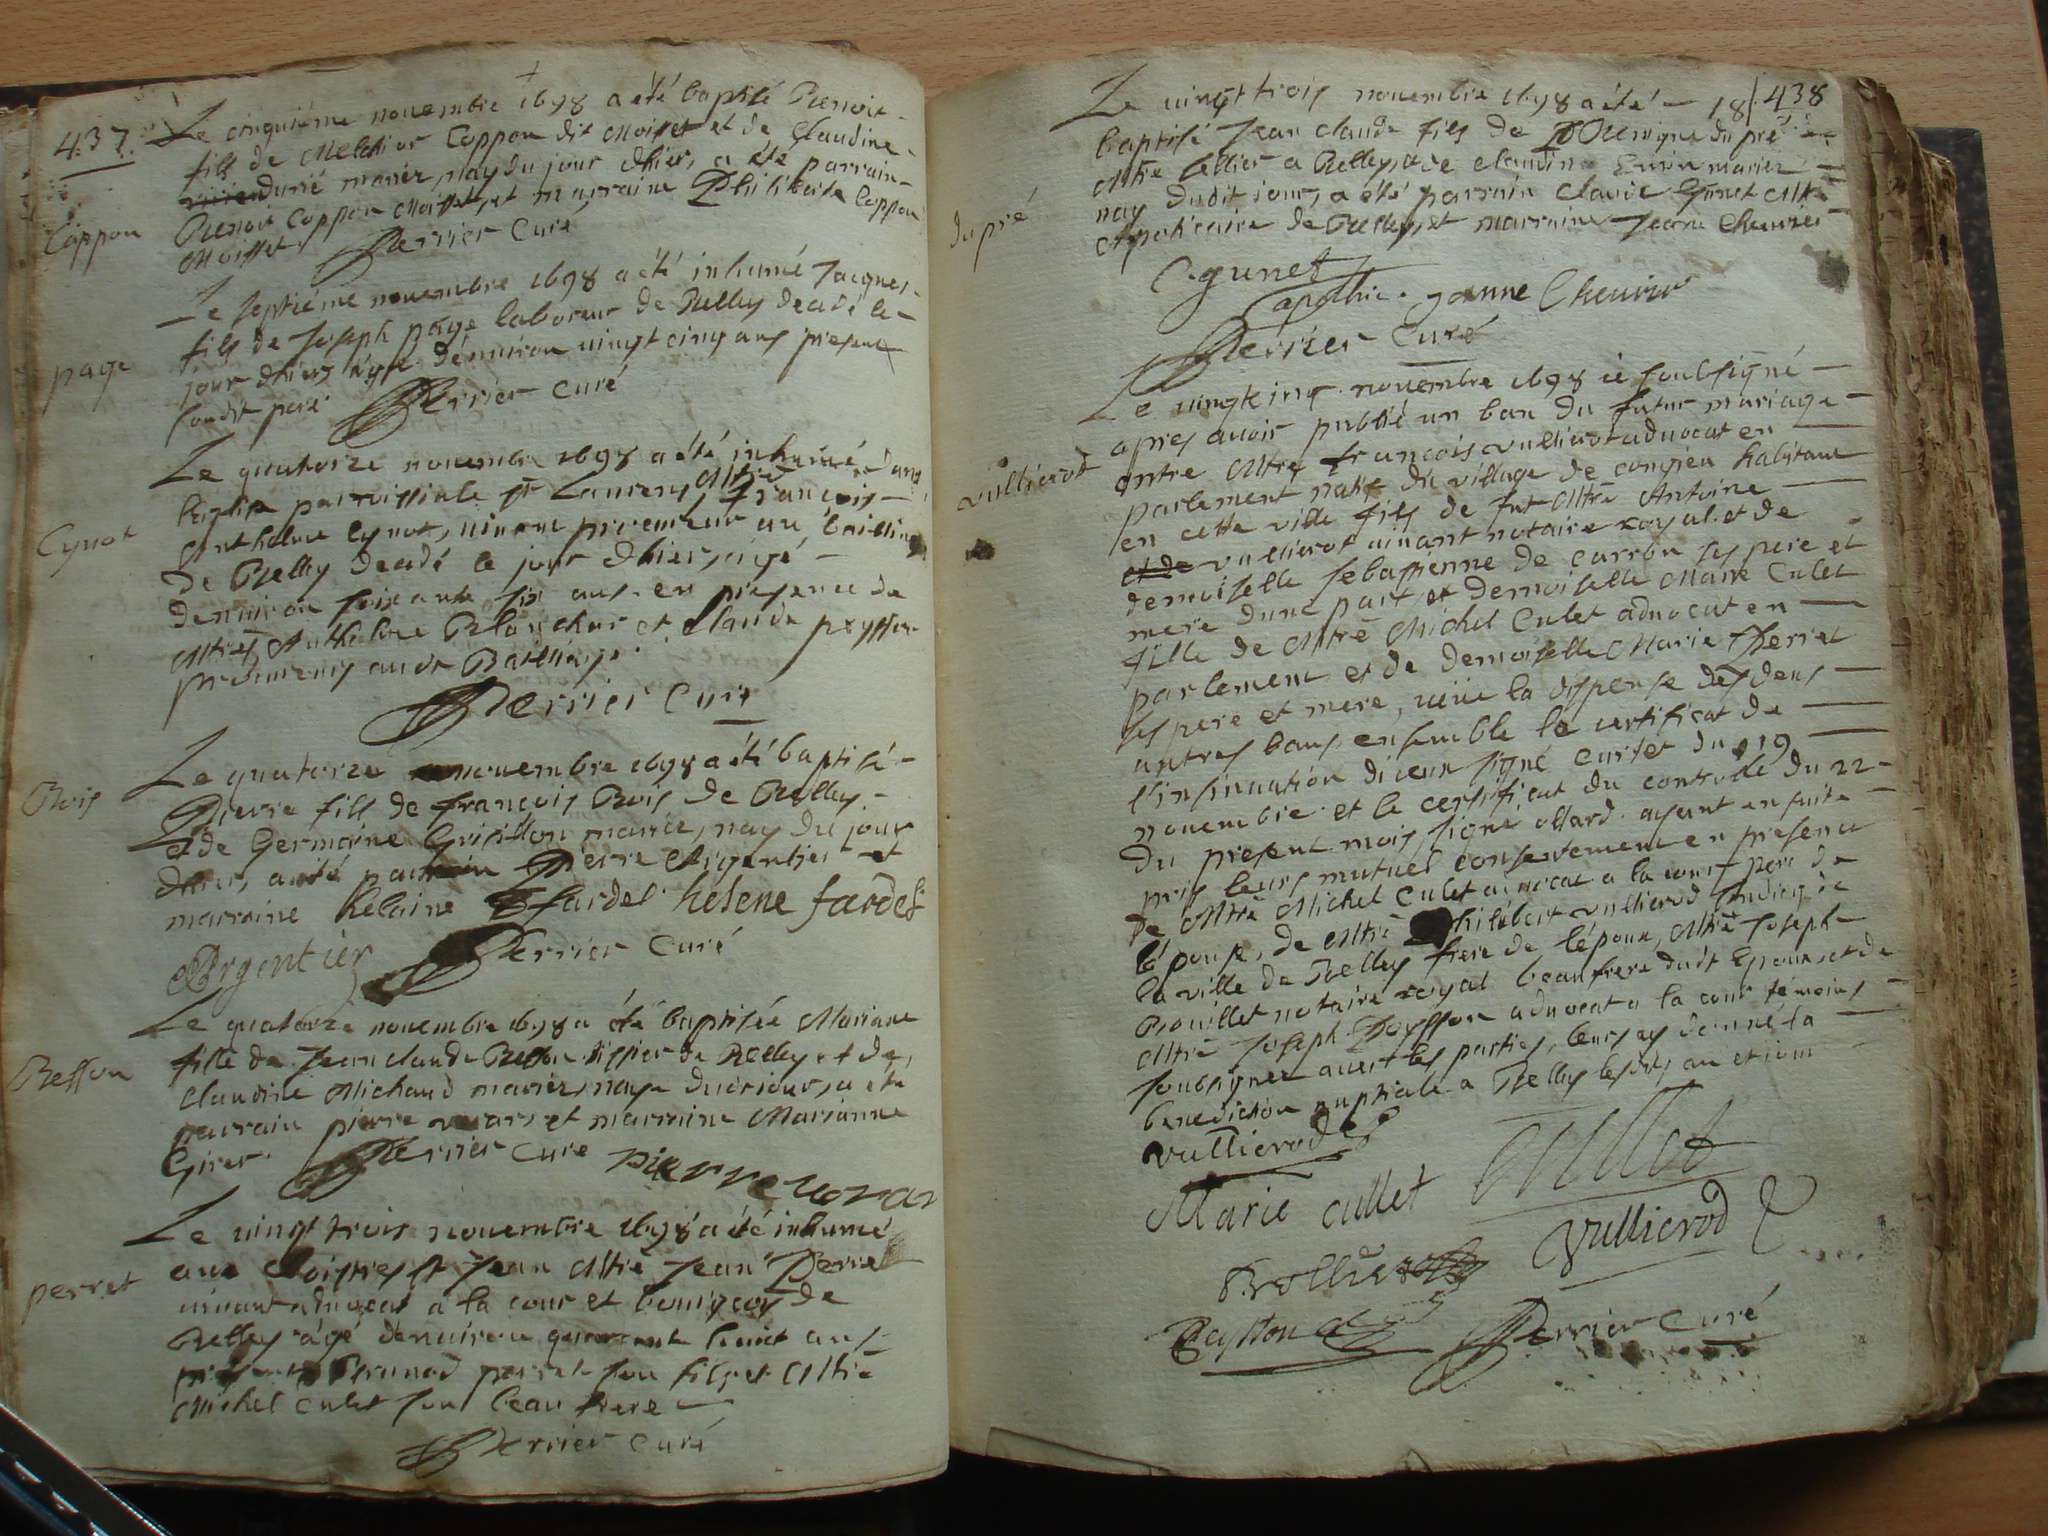 437.
Le cinquiéme novembre 1698 a été baptisé Benoit
fils de Melchior Coppon dit Moisset et de Claudine
mariéz, nay du jour dhier, a été parrain
Benoit Coppon Moisset, et marraine Philiberte Coppon
Moisset.
Perrier Curé
Coppon
Le septiéme novembre 1698 a été inhumé Jacques
fils de Joseph page laboreur de Belley decedé le
jour dhier agé denviron vingt cinq ans present
sondit pere
Perrier Curé
page
Le quatorze novembre 1698 a été inhumé dans
leglise parroissiale St Laurens Mtre françois
Anthelme Cynot, vivant procureur au bailliage
de Belley decedé le jour dhier, agé
denviron soixante six ans en presence de
Mtres Anthelme et Claude peysson
procureurs audit Bailliage.
Perrier Curé
Cynot
Le quatorze novembre 1698 a été baptisé
Pierre fils de françois Bois de Belley
et de Germaine mariéz, nay du jour
dhier, a été parrain Pierre Argentier et
marraine helaine fardel helene fardel
Argentier Perrier Curé
Bois
Le quatorze novembre 1698 a été baptisée Mariane
fille de Jean claude Besson tissier de Belley et de
Claudine Michaud mariéz, naye dudit jour, a été
parrain pierre et marraine Marianne
Girer.
Perrier Curé pierre
Besson
Le vingt trois novembre 1698 a été inhumé
aux Cloistres St Jean Mtre Jean Perret
vivant advocat a la cour et bourgeois de
Belley agé denviron quarante huict ans
presents perret son fils et Mtre
Michel Culet son beau frere
Perrier Curé
perret
18 / 438
Le vingt trois novembre 1698 a été
baptisé Jean claude fils de dupré
Mtre sellier a Belley et de claudine mariéz
nay dudit jour, a été parrain claude Gunet Mtre
Apoticaire de Belley, et marraine Jeane Cheurier
C. gunet
apothic. Janne Cheurier
Perrier Curé
dupré
Le vingtcinq novembre 1698 ie soubsigné
apres avoir publié un ban du futur mariage
entre Mtre françois vullierot advocat en
parlement natif du village de conzieu habitant
en cette ville fils de fut Mtre Antoine
et de vullierot vivant notaire royal et de
demoiselle sebastienne de carron ses pere et
mere dune part, et demoiselle Marie Culet
fille de Mtre Michel Culet advocat en
parlement et de demoiselle Marie Perret
ses pere et mere, veüe la dispense des deux
autres bans ensemble le certificat de
l'insinuation diceux signé Curtet du 19
novembre et le certificat du controlle du 22
du present mois signé ollard. ayant en suite
pris leurs mutuel consentement en presence
de Mtre Michel Culet advocat a la cour pere de
lépouse, de Mtre philibert vullierod sindicq de
la ville de Belley frere de lépoux, Mtre Joseph
Brouillet notaire royal beaufrere dudt Epoux, et de
Mtre Joseph Peysson advocat a la cour témoins
soubsignez avec les parties, leurs ay donné la
benediction nuptiale a Belley lesdits an et iour
vullierod
Marie cullet Cullet
Vullierod
Peysson Perrier Curé
vullierod